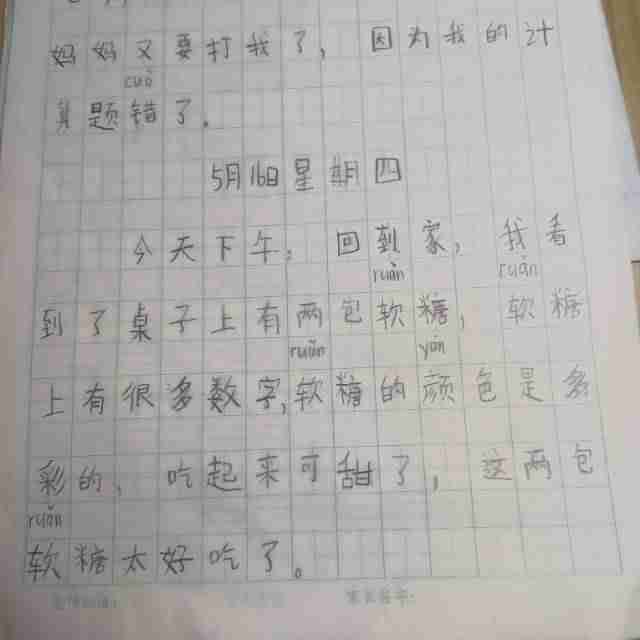 妈妈又要打我了，因为我的计
cuò
算题错了。
5月16日星期四
今天下午，回到家，我看
ruǎn ruǎn
到了桌子上有两包软糖，软糖
ruǎn yán
上有很多数字，软糖的颜色是多
彩的，吃起来可甜了，这两包
ruǎn
软糖太好吃了。